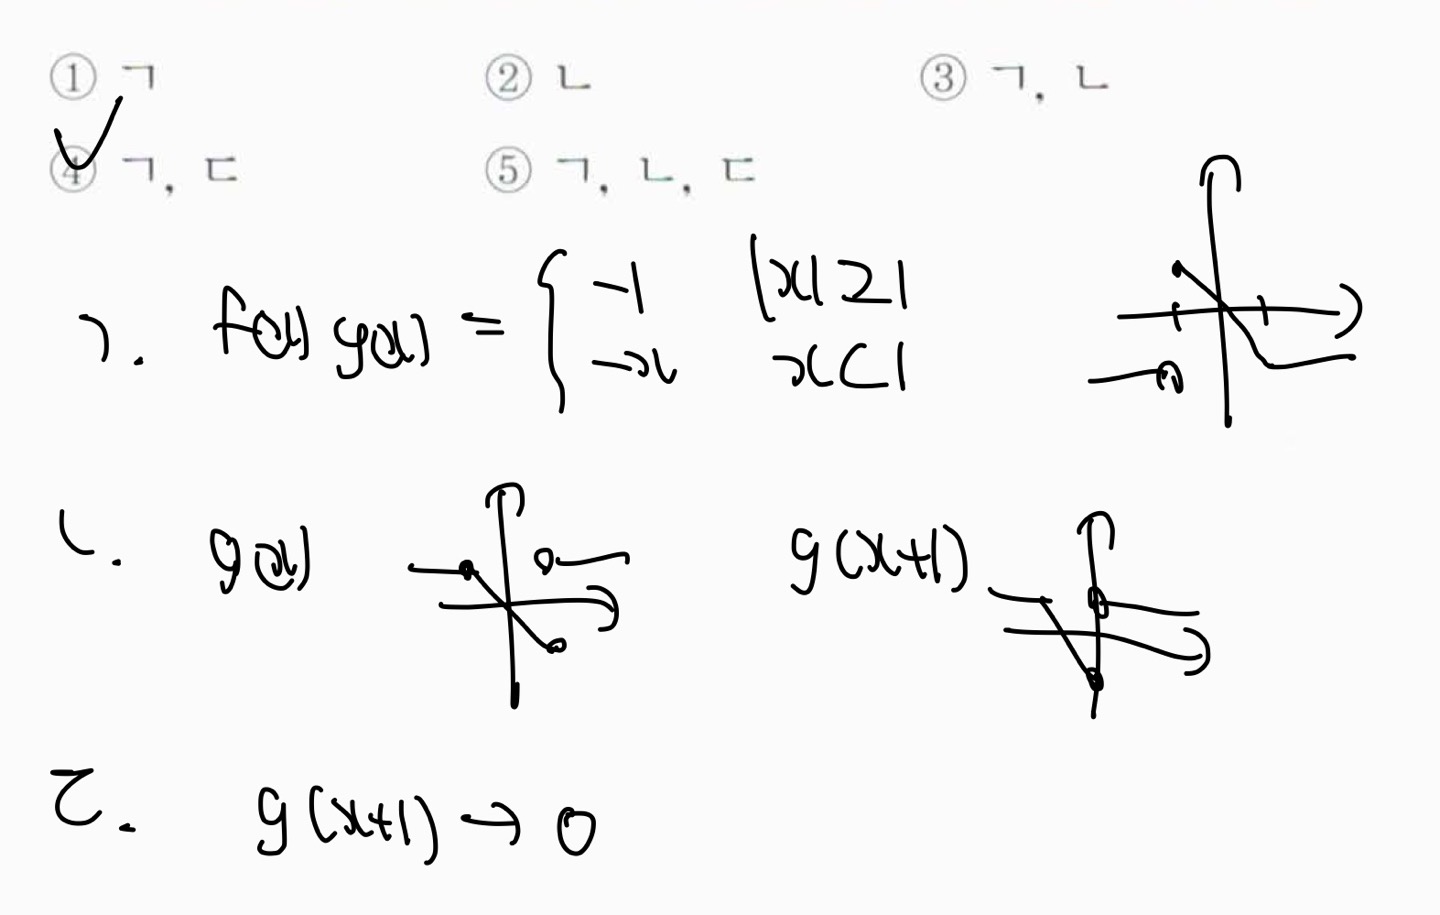 ① ㄱ ② ㄴ ③ ㄱ, ㄴ
④ ㄱ, ㄷ ⑤ ㄱ, ㄴ, ㄷ
ㄱ. f(x) g(x) = { -1 |x|≥1
-x x<1
ㄴ. g(x) g(x+1)
ㄷ. g(x+1) → 0